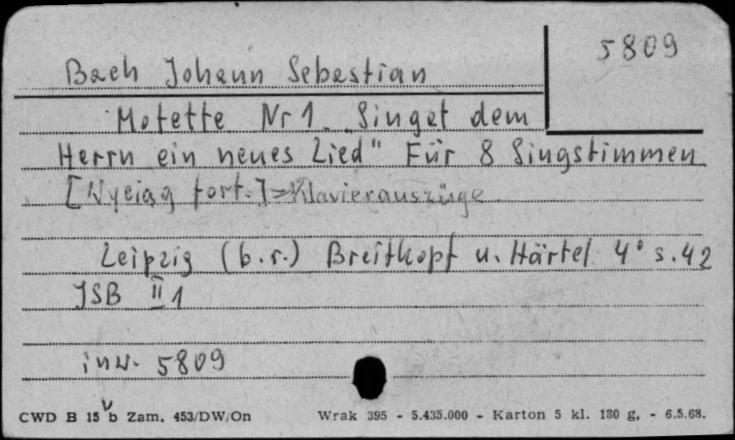 5809
Bach Johann Sebastian
Motette Nr 1 „Singet dem
Herrn ein neues Lied" Für 8 Singstimmen
[Wyciąg fort.] = Klavierauszüge
Leipzig (b.r.) Breitkopf u. Härtel 4° s. 42
JSB II 1
inw. 5809
CWD B 15 b Zam. 453/DW/On Wrak 395 - 5.435.000 - Karton 5 kl. 180 g, - 6.5.68.